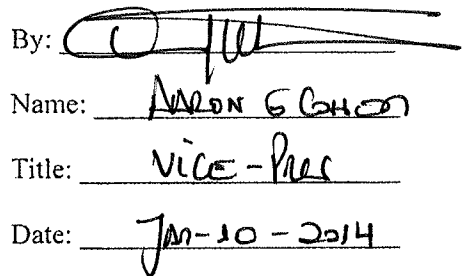 By:
Name: AARON G COHEN
Title: VICE-Pres
Date: Jan-10-2014